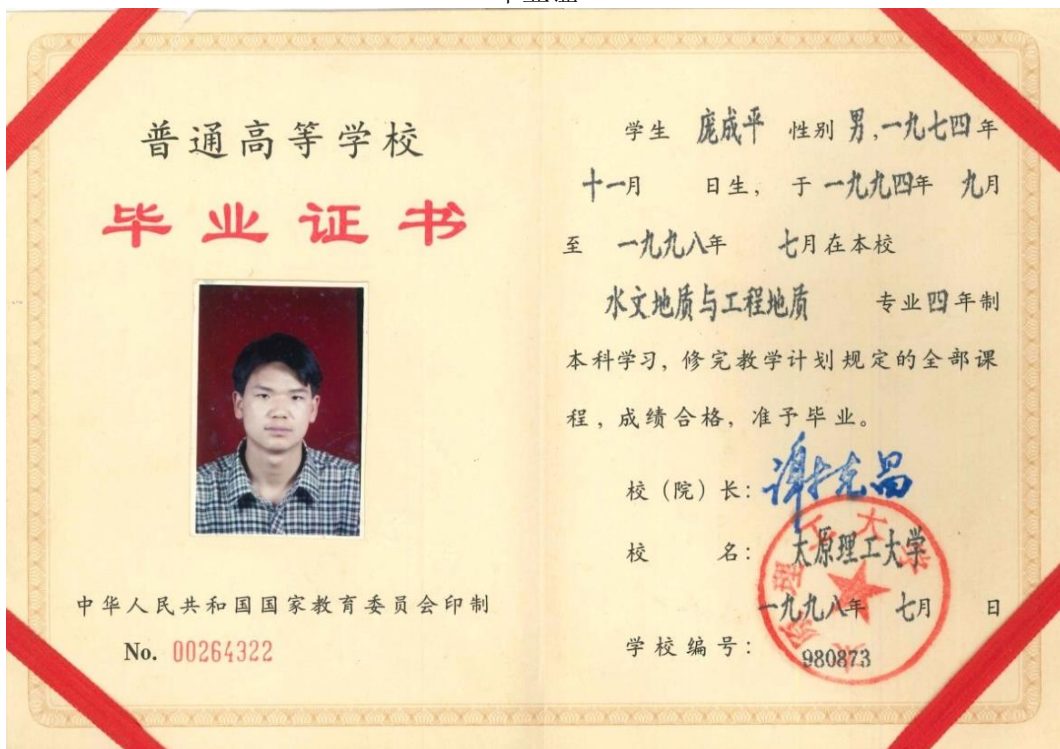 普通高等学校
毕业证书
中华人民共和国国家教育委员会印制
No. 00264322
学生 庞成平 性别 男,一九七四年
十一月 日生, 于 一九九四年 九月
至 一九九八年 七月在本校
水文地质与工程地质 专业四年制
本科学习, 修完教学计划规定的全部课
程, 成绩合格, 准予毕业。
校(院)长: 谢克昌
校 名: 太原理工大学
一九九八年 七月 日
学校编号: 980873
太原理工大学